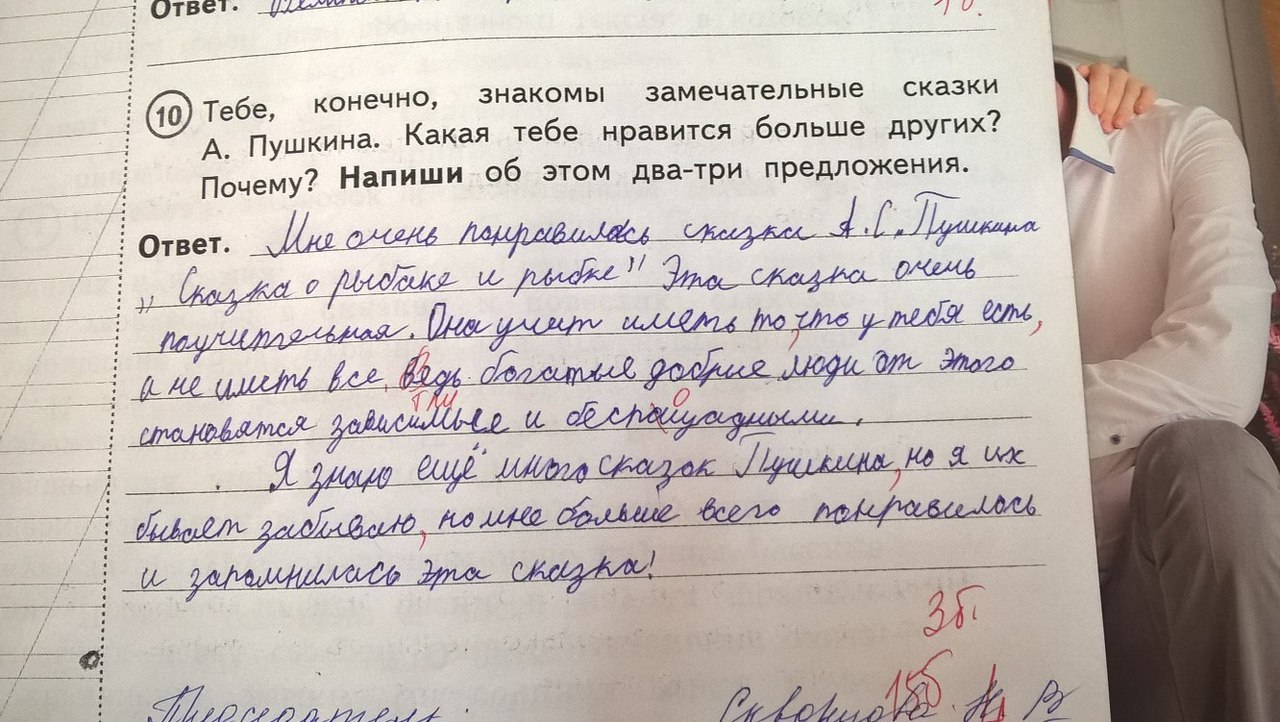 Ответ.
10 Тебе, конечно, знакомы замечательные сказки
А. Пушкина. Какая тебе нравится больше других?
Почему? Напиши об этом два-три предложения.
Ответ. Мне очень понравилась сказка А.С. Пушкина
„Сказка о рыбаке и рыбке” Эта сказка очень
поучительная. Она учит иметь то, что у тебя есть,
а не иметь все, ведь богатые добрые люди от этого
становятся зависимые и беспащадными.
Я знаю ещё много сказок Пушкина, но я их
бывает забываю, но мне больше всего понравилось
и запомнилась эта сказка!
3б.
15б